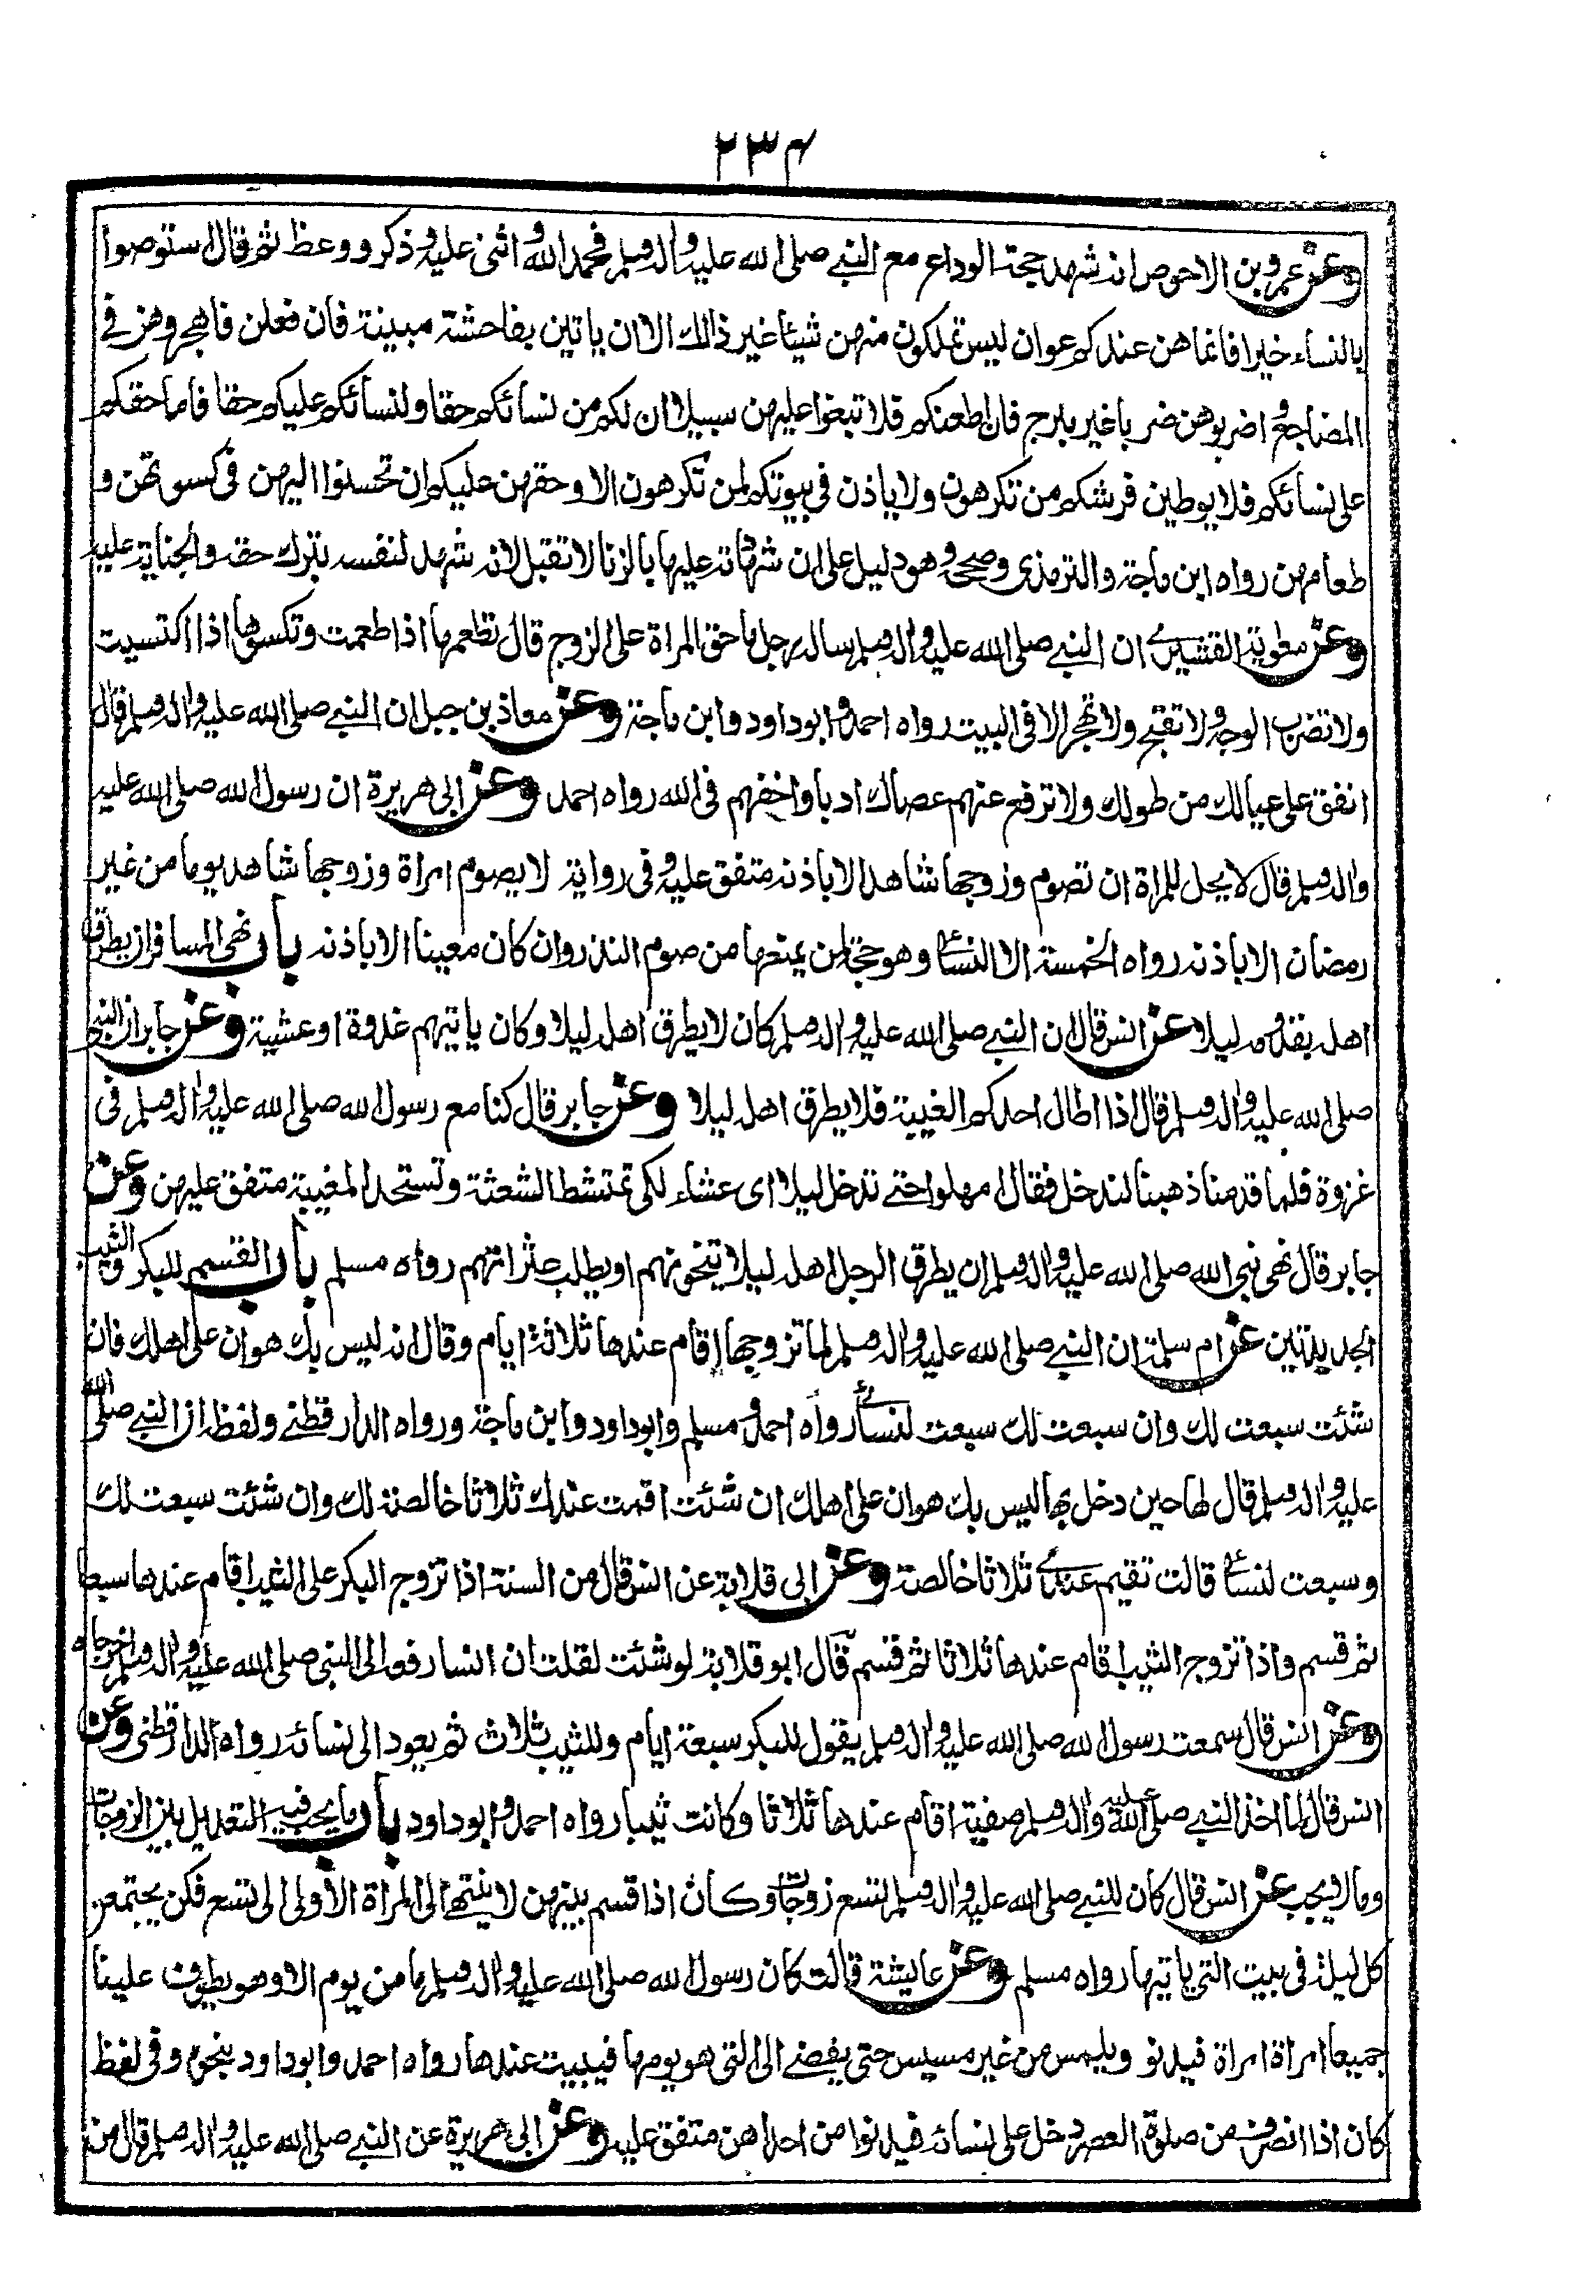 ٢٣٤
وعن عمرو بن الاحوص انه شهد حجة الوداع مع النبي صلى الله عليه واله وسلم فحمد الله واثنى عليه وذكر ووعظ ثم قال استوصوا
بالنساء خيرا فانما هن عندكم عوان ليس تملكون منهن شيئا غير ذالك الا ان ياتين بفاحشة مبينة فان فعلن فاهجروهن في
المضاجع واضربوهن ضربا غير مبرح فان اطعنكم فلا تبغوا عليهن سبيلا ان لكم من نسائكم حقا ولنسائكم عليكم حقا فاما حقكم
على نسائكم فلا يوطين فرشكم من تكرهون ولا ياذن في بيوتكم لمن تكرهون الا وحقهن عليكم ان تحسنوا اليهن في كسوتهن و
طعامهن رواه ابن ماجة والترمذى وصححه وهو دليل على ان شهادته عليها بالزنا لا تقبل لانه شهد لنفسه بترك حقه والجناية عليه
وعن معوية القشيرى ان النبي صلى الله عليه واله وسلم ساله رجل ما حق المراة على الزوج قال تطعمها اذا طعمت وتكسوها اذا اكتسيت
ولا تضرب الوجه ولا تقبح ولا تهجر الا فى البيت رواه احمد وابو داود وابن ماجة وعن معاذ بن جبل ان النبي صلى الله عليه واله وسلم قال
انفق على عيالك من طولك ولا ترفع عنهم عصاك ادبا واخفهم فى الله رواه احمد وعن ابى هريرة ان رسول الله صلى الله عليه
واله وسلم قال لا يحل للمراة ان تصوم وزوجها شاهد الا باذنه متفق عليه وفى رواية لا يصوم امراة وزوجها شاهد يوما من غير
رمضان الا باذنه رواه الخمسة الا النسائى وهو حجة لمن يمنعها من صوم النذر وان كان معينا الا باذنه باب نهى المسافر ان يطرق
اهله بقدومه ليلا عن انس قال ان النبي صلى الله عليه واله وسلم كان لا يطرق اهله ليلا وكان ياتيهم غدوة او عشية وعن جابر ان النبي
صلى الله عليه واله وسلم قال اذا اطال احدكم الغيبة فلا يطرق اهله ليلا وعن جابر قال كنا مع رسول الله صلى الله عليه واله وسلم فى
غزوة فلما قدمنا ذهبنا لندخل فقال امهلوا حتى ندخل ليلا اى عشاء لكى تمتشط الشعثة وتستحد المغيبة متفق عليهن وعن
جابر قال نهى نبى الله صلى الله عليه واله وسلم ان يطرق الرجل اهله ليلا يتخونهم او يطلب عثراتهم رواه مسلم باب القسم للبكر والثيب
الجديدتين عن ام سلمة ان النبي صلى الله عليه واله وسلم لما تزوجها اقام عندها ثلاثة ايام وقال انه ليس بك هوان على اهلك فان
شئت سبعت لك وان سبعت لك سبعت لنسائى رواه احمد ومسلم وابو داود وابن ماجة ورواه الدار قطني ولفظه ان النبي صلى الله
عليه واله وسلم قال لها حين دخل بها ليس بك هوان على اهلك ان شئت اقمت عندك ثلاثا خالصة لك وان شئت سبعت لك
وسبعت لنسائى قالت تقيم عندى ثلاثا خالصة وعن ابى قلابة عن انس قال من السنة اذا تزوج البكر على الثيب اقام عندها سبعا
ثم قسم واذا تزوج الثيب اقام عندها ثلاثا ثم قسم قال ابو قلابة لو شئت لقلت ان انسا رفعه الى النبى صلى الله عليه واله وسلم اخرجاه
وعن انس قال سمعت رسول الله صلى الله عليه واله وسلم يقول للبكر سبعة ايام وللثيب ثلاث ثم يعود الى نسائه رواه الدار قطنى وعن
انس قال لما اخذ النبي صلى الله عليه واله وسلم صفية اقام عندها ثلاثا وكانت ثيبا رواه احمد وابو داود باب ما يجب فيه التعديل بين الزوجات
وما لا يجب عن انس قال كان للنبي صلى الله عليه واله وسلم تسع زوجات وكان اذا قسم بينهن لا ينتهى الى المراة الاولى الى تسع فكن يجتمعن
كل ليلة فى بيت التى ياتيها رواه مسلم وعن عايشة قالت كان رسول الله صلى الله عليه واله وسلم ما من يوم الا وهو يطوف علينا
جميعا امراة امراة فيدنو ويلمس من غير مسيس حتى يفضي الى التى هو يومها فيبيت عندها رواه احمد وابو داود بنحوه وفى لفظ
كان اذا انصرف من صلوة العصر دخل على نسائه فيدنوا من احداهن متفق عليه وعن ابى هريرة عن النبي صلى الله عليه واله وسلم قال من